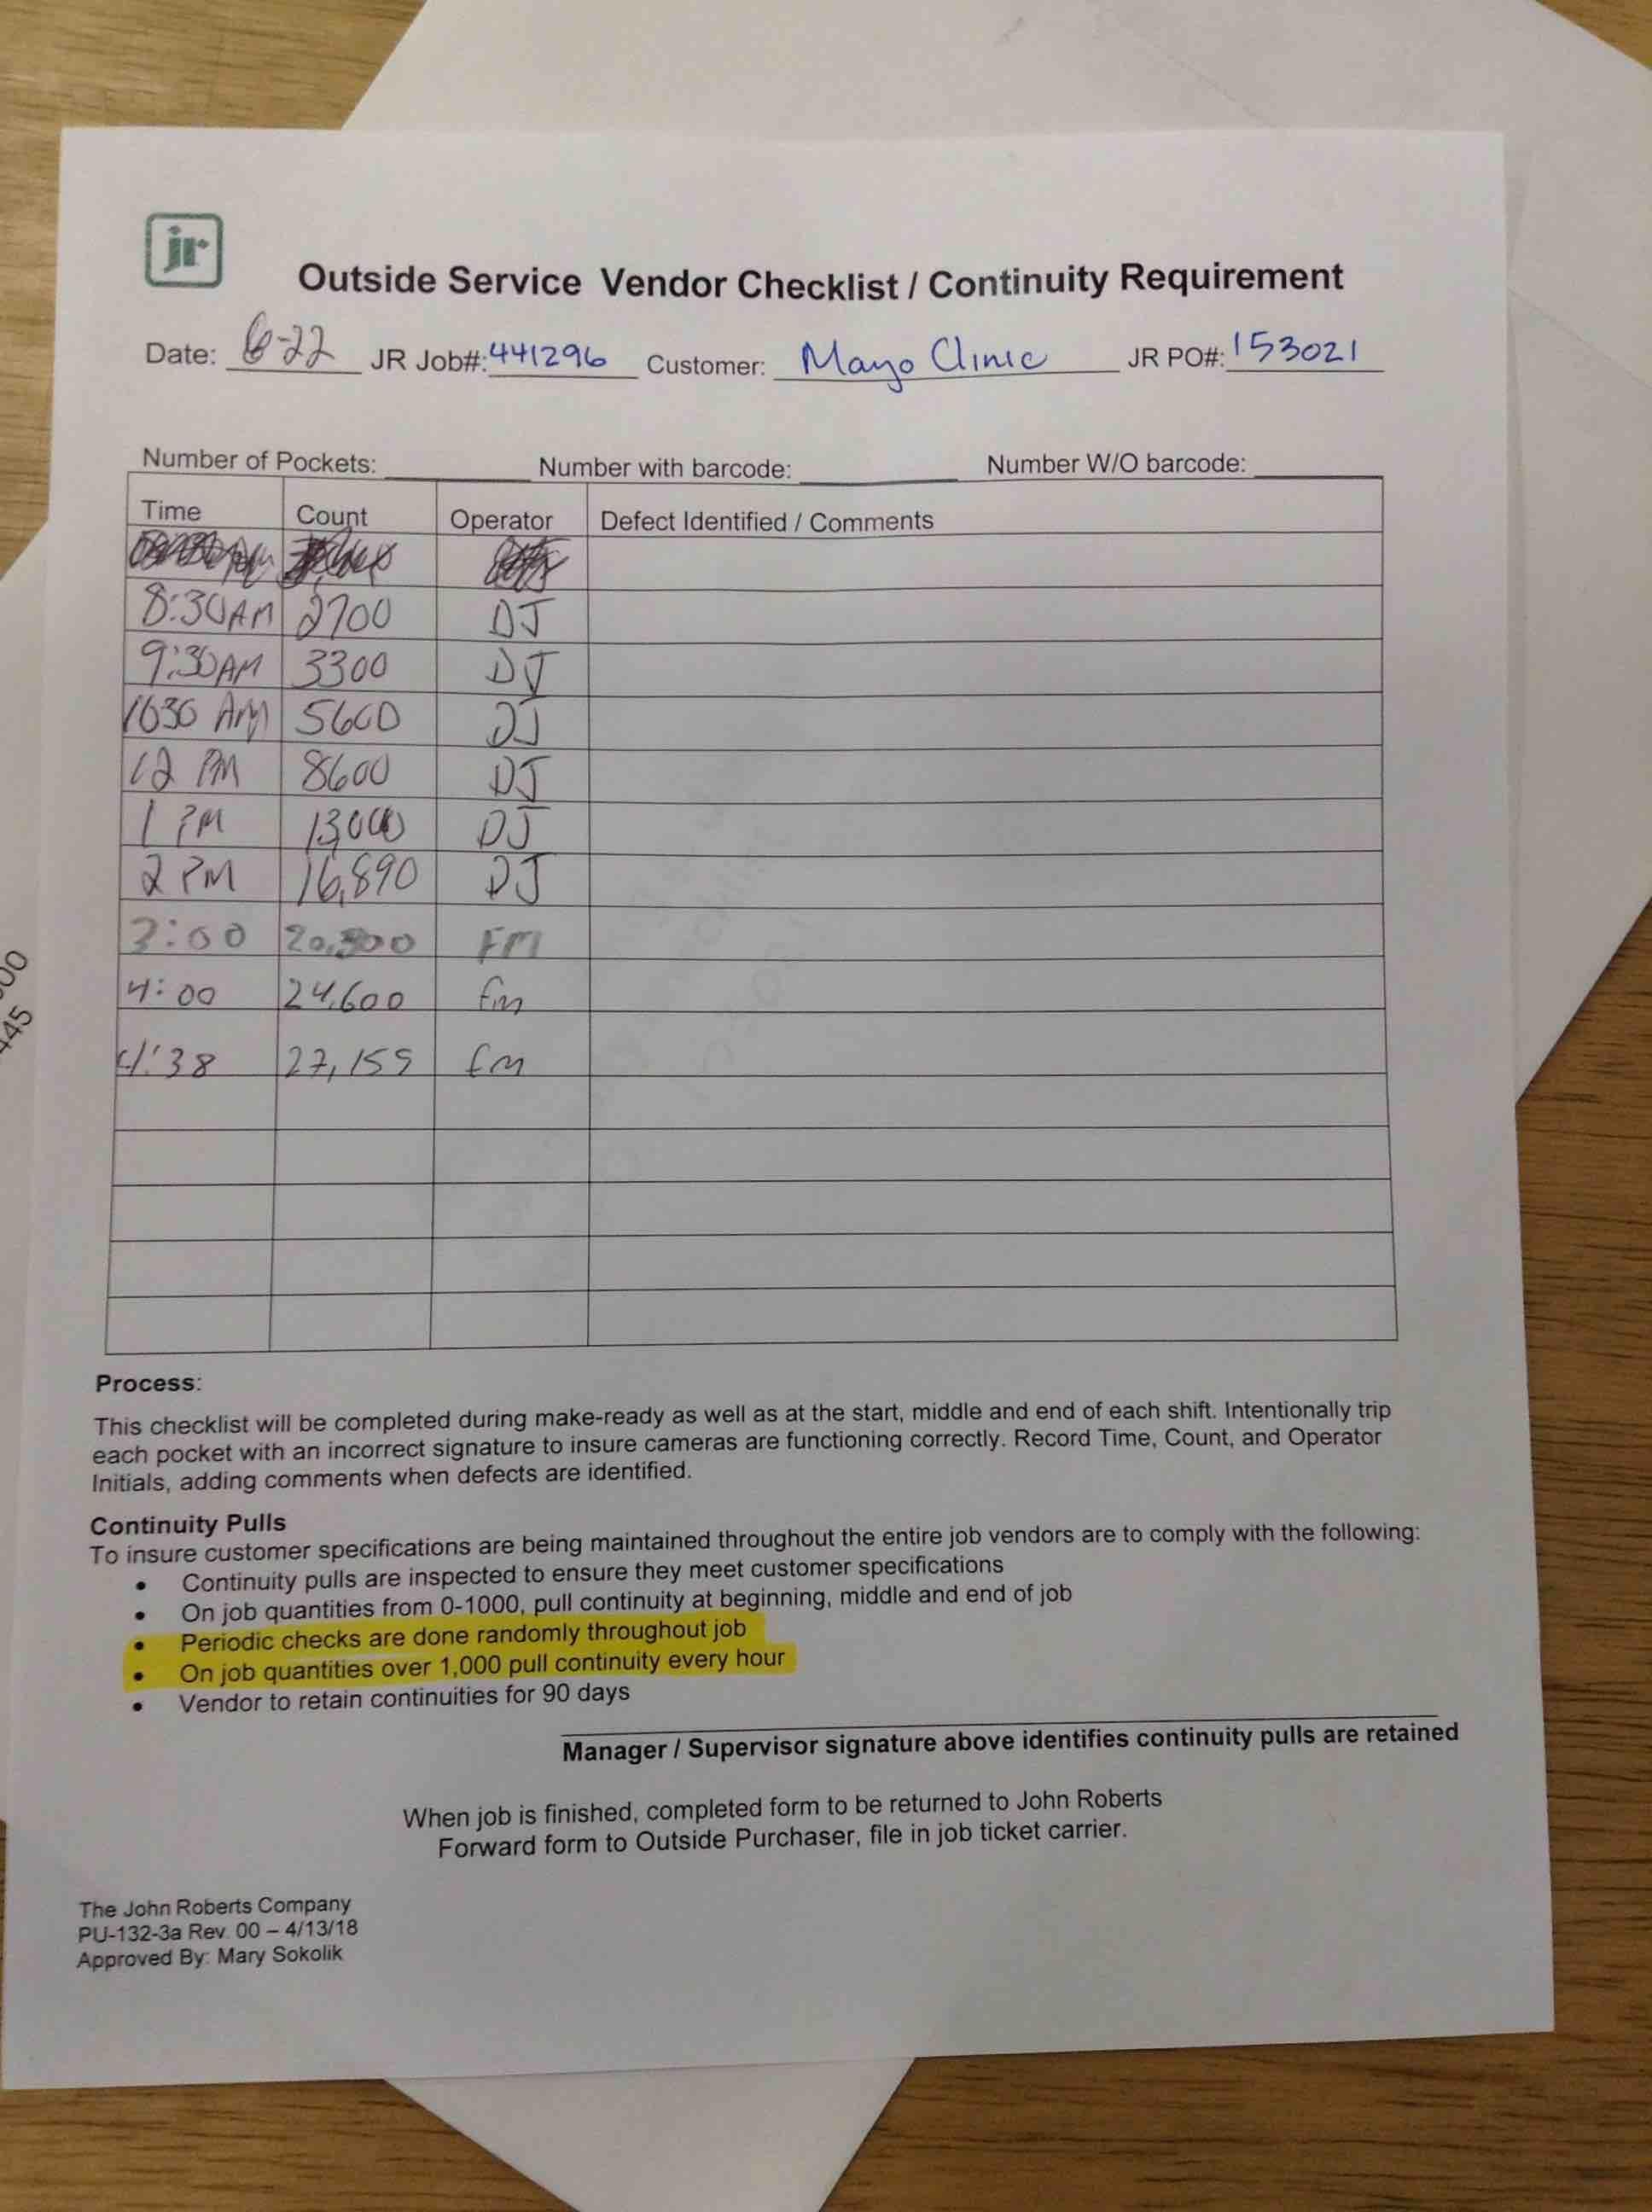 jr
Outside Service Vendor Checklist / Continuity Requirement
Date: 6-22 JR Job#: 441296 Customer: Mayo Clinic JR PO#: 153021
Number of Pockets: Number with barcode: Number W/O barcode:
Time Count Operator Defect Identified / Comments
8:30AM 2700 DJ
9:30AM 3300 DJ
1030 AM 5600 DJ
12 PM 8600 DJ
1 PM 13,000 DJ
2 PM 16,890 DJ
3:00 FM
4:00 24,600 fm
4:38 27,159 fm
Process:
This checklist will be completed during make-ready as well as at the start, middle and end of each shift. Intentionally trip
each pocket with an incorrect signature to insure cameras are functioning correctly. Record Time, Count, and Operator
Initials, adding comments when defects are identified.
Continuity Pulls
To insure customer specifications are being maintained throughout the entire job vendors are to comply with the following:
• Continuity pulls are inspected to ensure they meet customer specifications
• On job quantities from 0-1000, pull continuity at beginning, middle and end of job
• Periodic checks are done randomly throughout job
• On job quantities over 1,000 pull continuity every hour
• Vendor to retain continuities for 90 days
Manager / Supervisor signature above identifies continuity pulls are retained
When job is finished, completed form to be returned to John Roberts
Forward form to Outside Purchaser, file in job ticket carrier.
The John Roberts Company
PU-132-3a Rev. 00 – 4/13/18
Approved By: Mary Sokolik